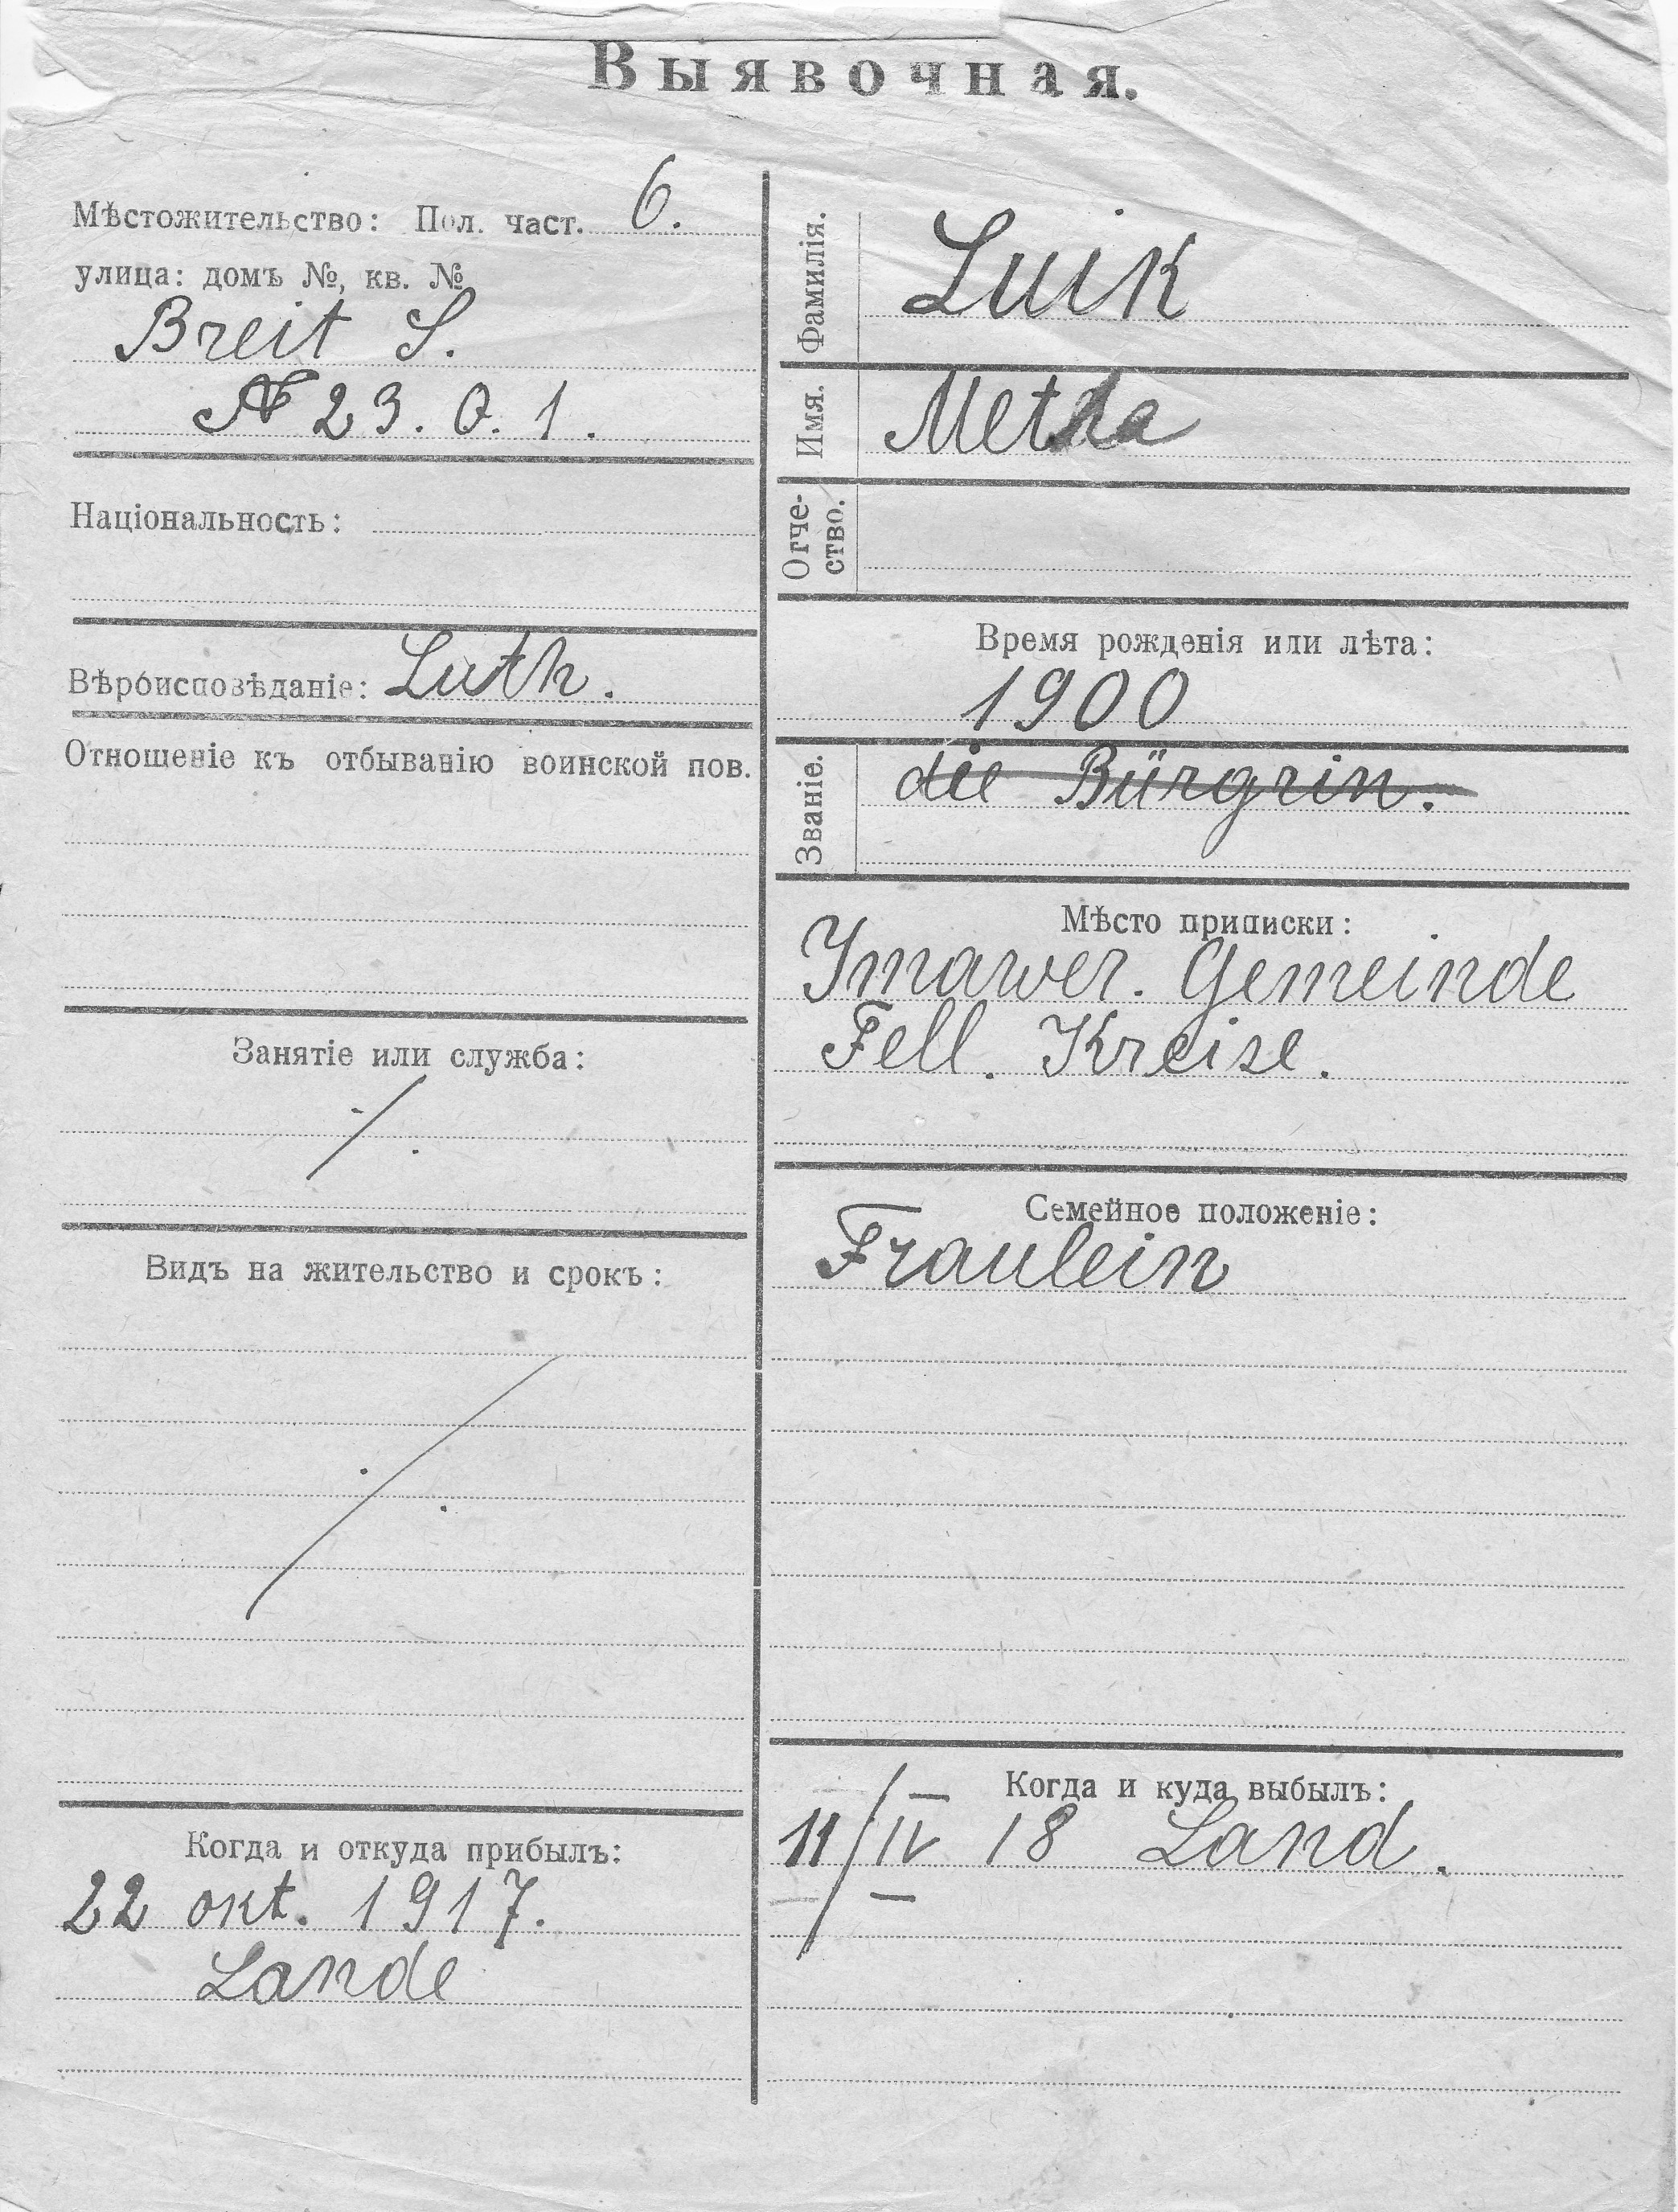 Выявочная.
Мѣстожительство: Пол. част. 6.
улица: домъ №, кв. №
Breit S.
№ 23. Q. 1.
Національность:
Вѣроисповѣданіе: Luth.
Отношеніе къ отбыванію воинской пов.
Занятіе или служба:
Видъ на жительство и срокъ:
Когда и откуда прибылъ:
22 окt. 1917.
Lande
Фамилія. Luik
Имя. Metha
Отче-
ство.
Время рожденія или лѣта:
1900
Званіе. die Bürgrin.
Мѣсто приписки:
Ymawer. Gemeinde
Fell. Kreise.
Семейное положеніе:
Fraulein
Когда и куда выбылъ:
11/IV 18 Land.